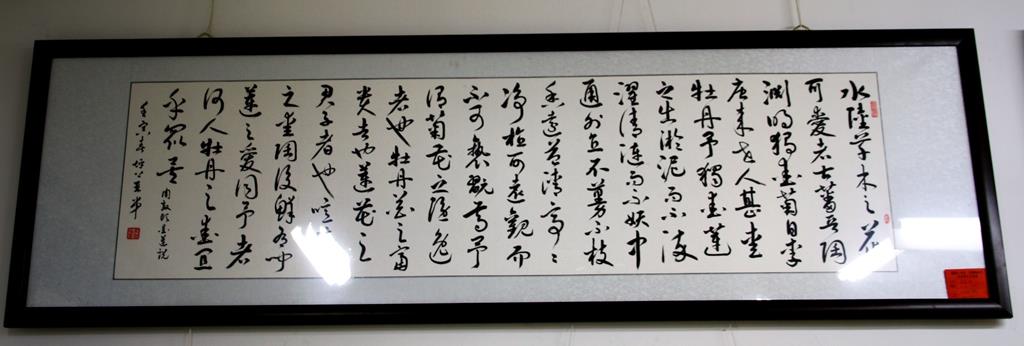 水陸草木之花
可愛者甚蕃晉陶
淵明獨愛菊自李
唐来世人甚愛
牡丹予獨愛蓮
之出淤泥而不染
濯清漣而不妖中
通外直不蔓不枝
香遠益清亭〻
净植可遠觀而
不可褻翫焉予
謂菊花之隱逸
者也牡丹花之富
貴者也蓮花之
君子者也噫
之愛陶後鮮有聞
蓮之愛同予者
何人牡丹之愛宜
乎眾矣 周敦頤愛蓮說